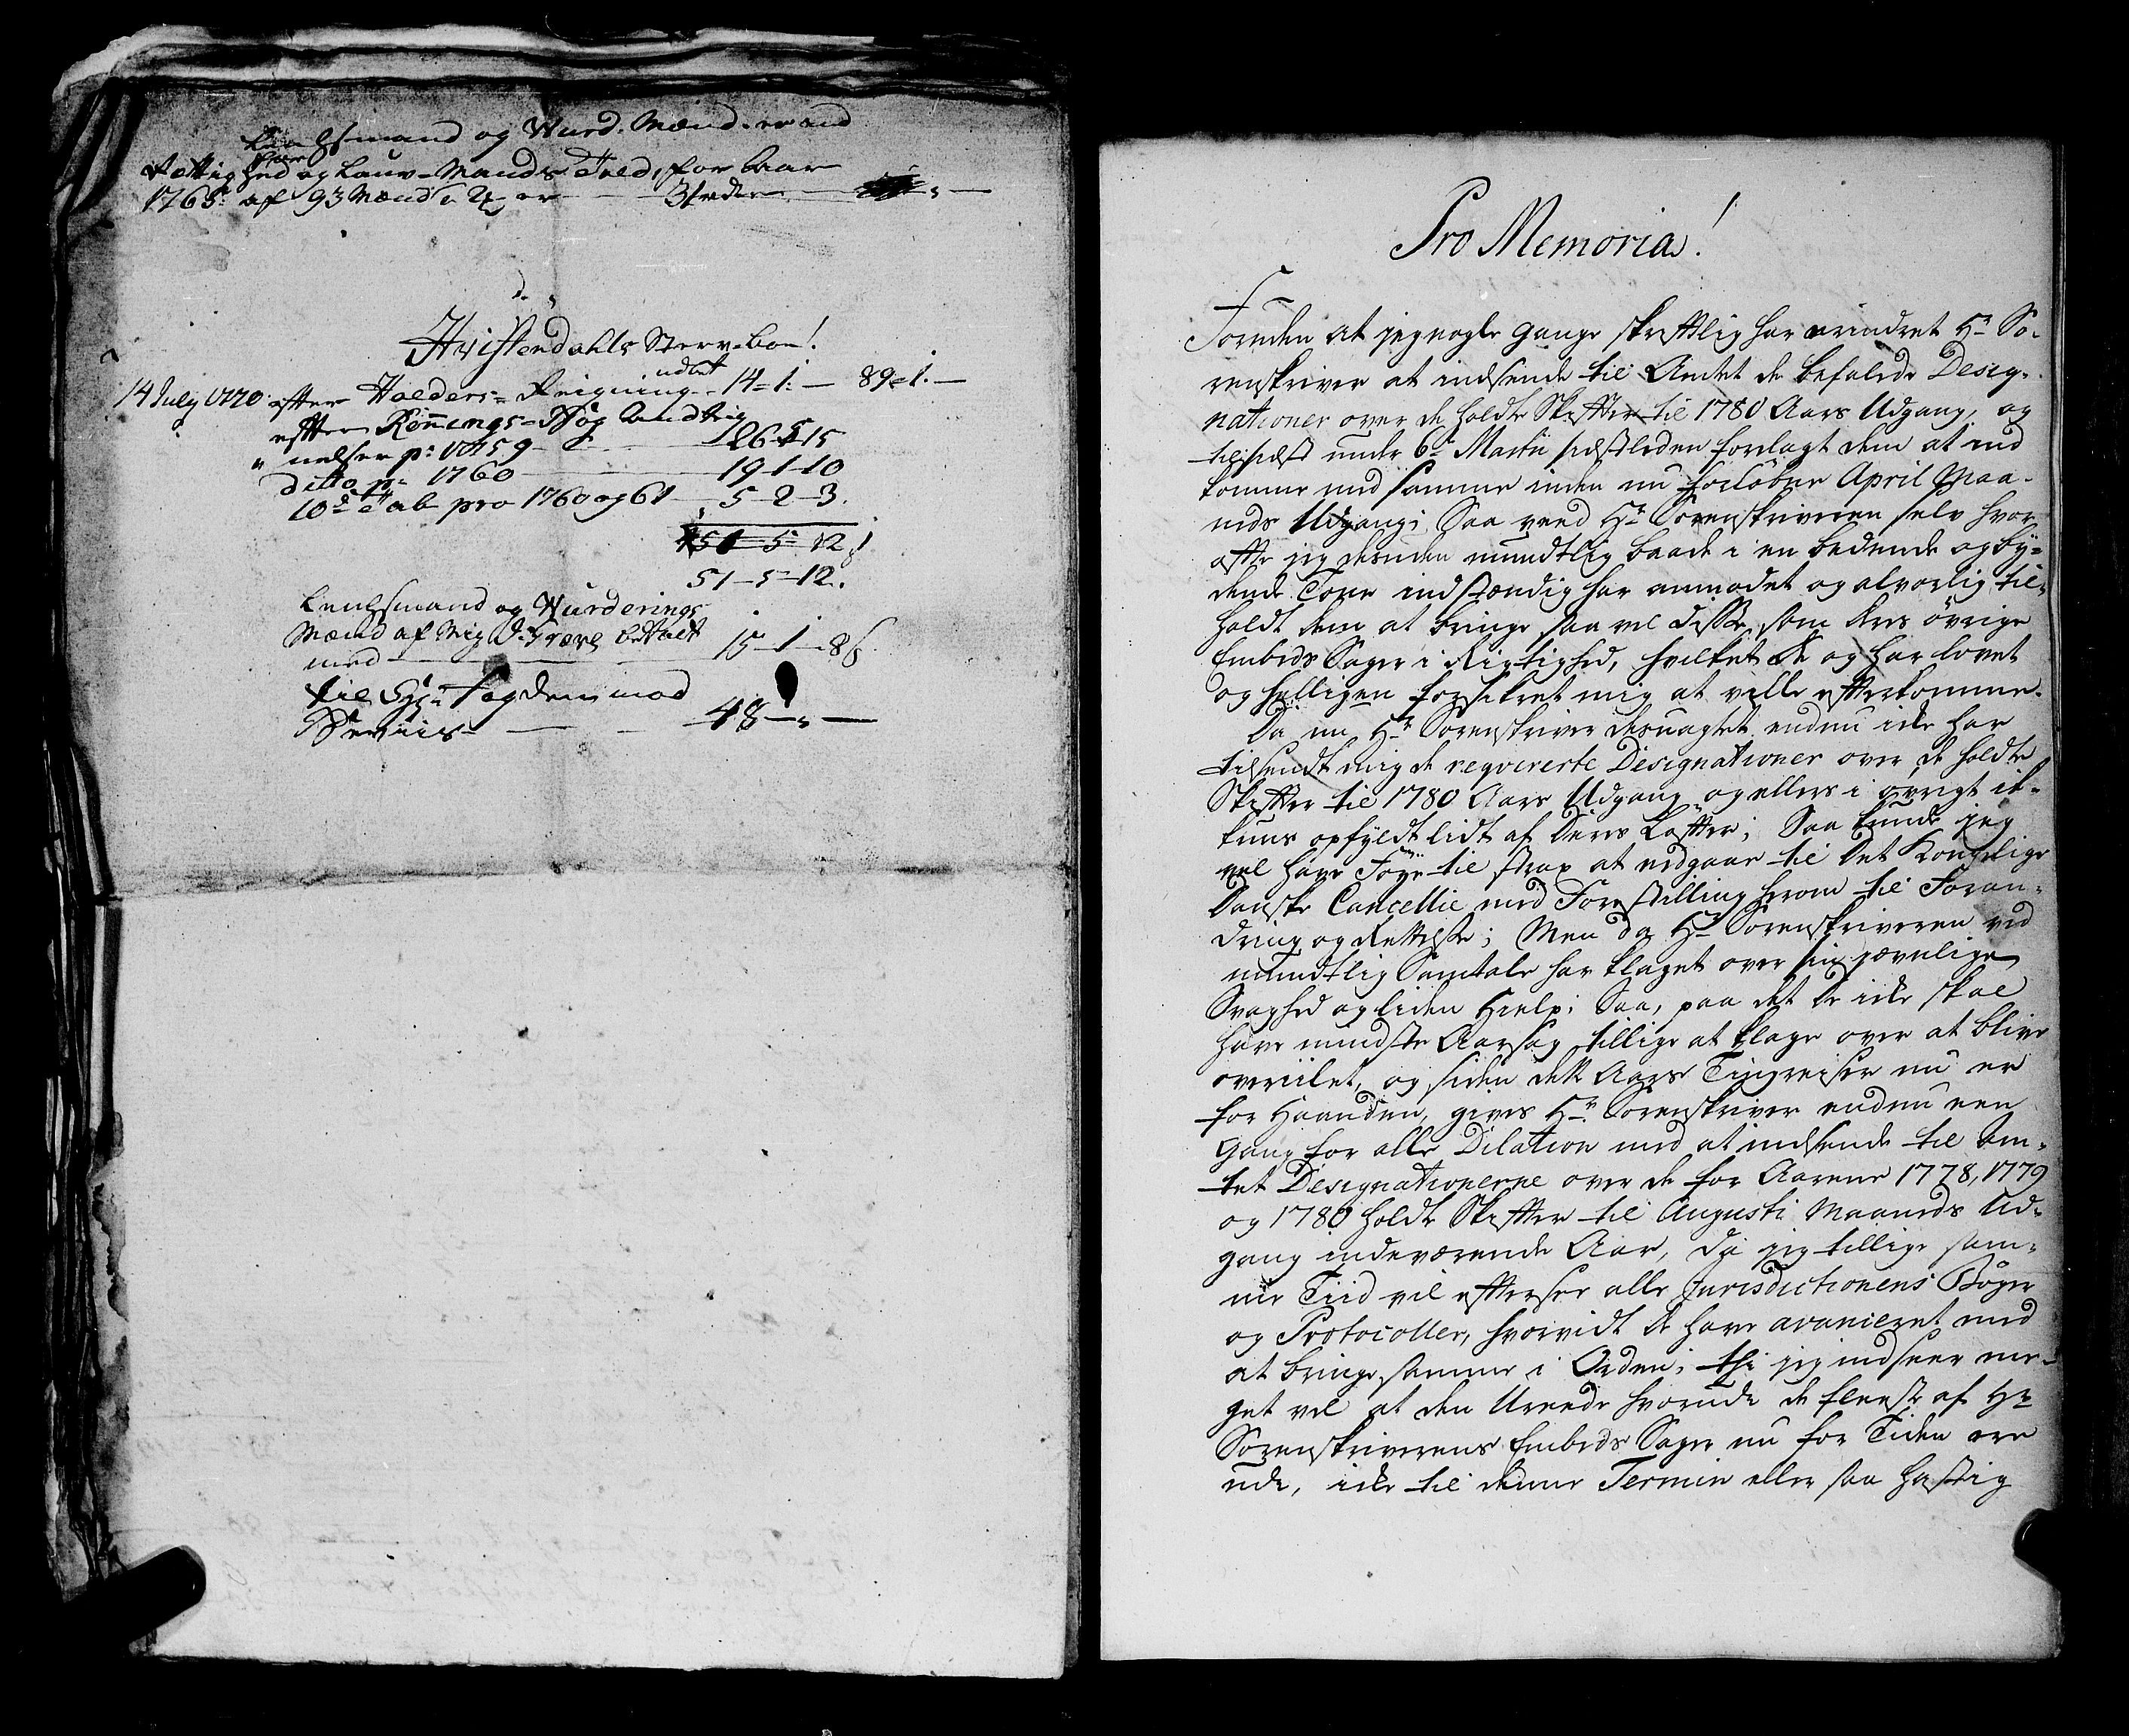 Lensmand og Wurd. Mænd. er med
Rettighed og Lauv-Mands Told, for Aar
1765. af 93 Mænd
Hvistendahls Sterv-boe!
udlæt
14 July 1770. efter Holders-Reigning 14-1.- 89-1.-
efter Rønnings-Skog
nelser p: 1759 26-5-15
ditto p: 1760 19-1-10
10de Tab pro 1760 og 61 5-2-3.
51-5-12
51-5-12.
Lensmand og Wurderings
Mænd af Mig betalt
med 15-1-8ß.
til Hr. Fogden mod
Beviis 48-"-
Pro Memoria!
Foruden at jeg nogle Gange skriftlig har erindret Hr. So-
renskriver at indsende til Amtet de befalede Desig-
nationer over de holdte Skifter til 1780 Aars Udgang, og
tilsidst under 6te Martii sidstleden forelagt dem at ind
komme med samme inden nu forløbne April Maa-
neds Udgang; Saa veed Hr. Sorenskriveren selv hvor
ofte jeg desuden mundtlig baade i en bedende og by-
dende Tone indstændig har anmodet og alvorlig til-
holdt dem at bringe saa vel disse, som deres øvrige
Embeds Sager i Rigtighed, hvilket De og har lovet
og helligen forsikret mig at ville efterkomme.
Da nu Hr. Sorenskriver desuagtet endnu ikke har
tilsendt mig de reqvirerte Designationer over de holdte
Skifter til 1780 Aars Udgang og ellers i øvrigt ik-
kuns opfyldt lidt af Deres Løfter; Saa kunde jeg
vel have Føye til strax at indgaae til Det Kongelige
Danske Cancellie med Forestilling herom til Foran-
dring og Rettelse; Men da Hr. Sorenskriveren ved
mundtlig Samtale har klaget over sin jævnlige
Svaghed og liden Hielp; Saa, paa det De ikke skal
have mindste Aarsag tillige at klage over at blive
overiilet, og siden dette Aars Tingreiser nu er
for Haanden, gives Hr. Sorenskriver endnu een
Gang for alle Dilation med at indsende til Am-
tet Designationerne over de for Aarene 1778, 1779
og 1780 holdte Skifter til Augusti Maaneds Ud-
gang indeværende Aar, da jeg tillige sam-
me Tiid vil eftersee alle Jurisdictionens Bøger
og Protocoller, hvorvidt De have avanceret med
at bringe samme i Orden; thi jeg indseer me-
get vel at den Ureede hvorudi de fleeste af Hr.
Sorenskriverens Embeds Sager nu for Tiden ere
udi, ikke til denne Termin eller saa hastig